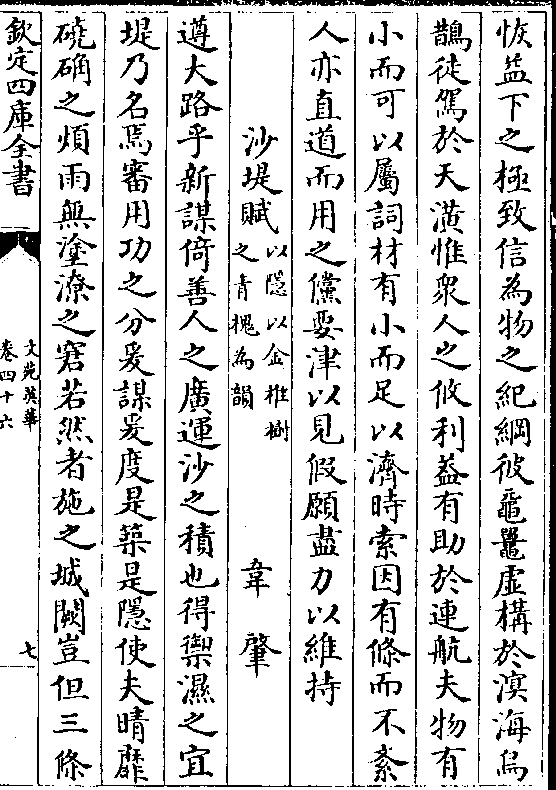 恢益下之極致信為物之紀綱彼黿鼉虛構於溟海烏
鵲徒駕於天潢惟衆人之攸利葢有助於連航夫物有
小而可以屬詞材有小而足以濟時索因有條而不紊
人亦直道而用之儻要津以見假願盡力以維持
沙堤賦以隱以金椎樹之青槐為韻 韋肇
遵大路乎新謀倚善人之廣運沙之積也得禦濕之宜
堤乃名焉審用功之分爰謀爰度是築是隱使夫晴靡
磽确之煩雨無塗潦之窘若然者施之城闕豈但三條
欽定四庫全書 文苑英華卷四十六 七